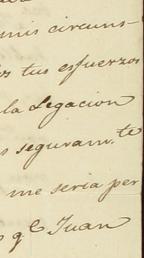 mis circuns-
os tus esfuerzos
la Legacion
s seguram.te
me seria per
q.e Juan